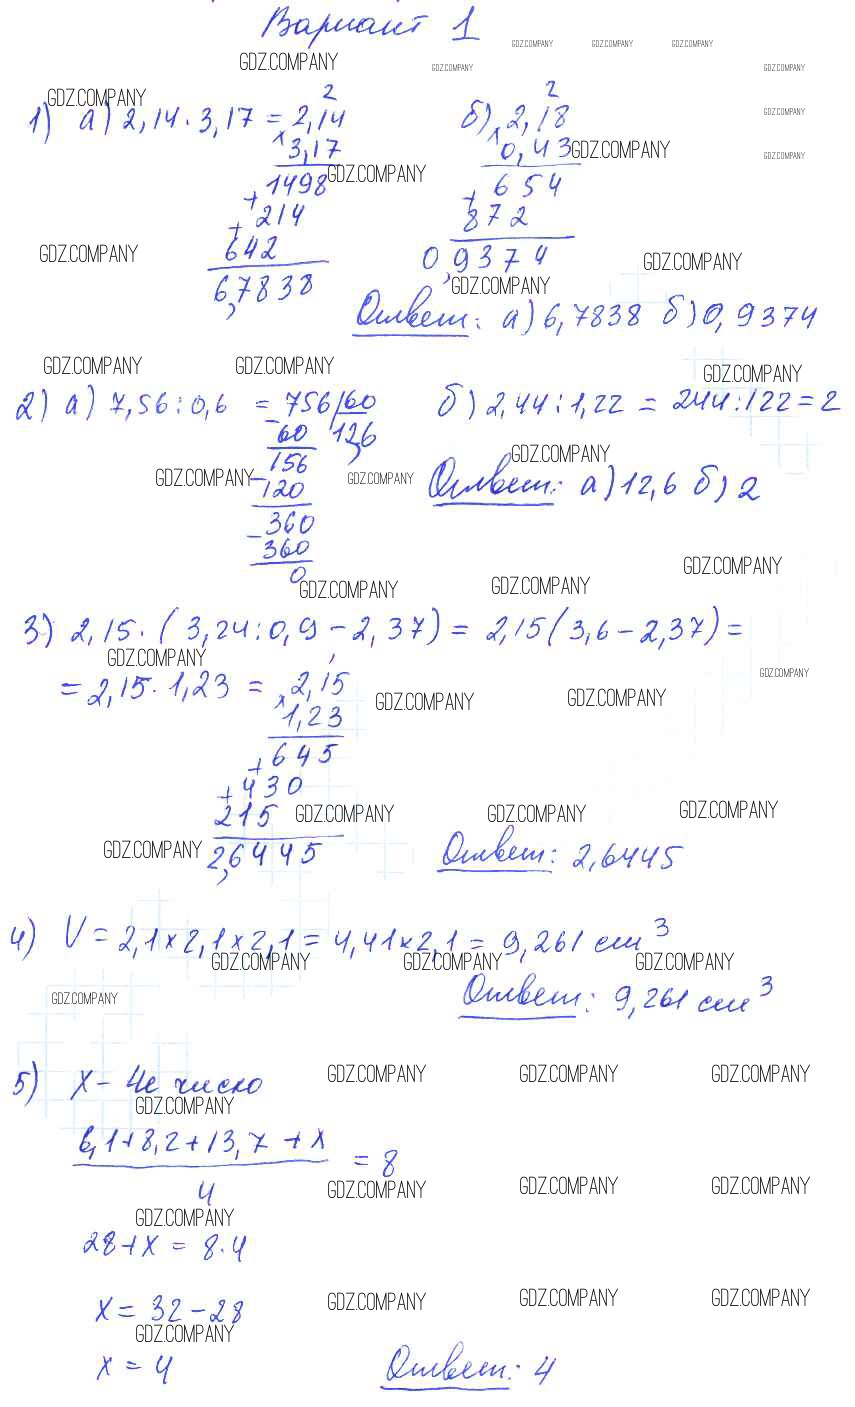 Вариант 1
1) а) 2,14 · 3,17 = 2,14 б) 2,18
2 2
× 3,17 × 0,43
+ 1498 + 654
+ 214 872
642 0,9374
6,7838
Ответ: а) 6,7838 б) 0,9374
2) а) 7,56 : 0,6 = 756 | 60 б) 2,44 : 1,22 = 244 : 122 = 2
- 60 12,6
156
- 120 Ответ: а) 12,6 б) 2
- 360
360
0
3) 2,15 · (3,24 : 0,9 - 2,37) = 2,15 (3,6 - 2,37) =
= 2,15 · 1,23 = × 2,15
1,23
+ 645
+ 430
215
2,6445 Ответ: 2,6445
4) V = 2,1 × 2,1 × 2,1 = 4,41 × 2,1 = 9,261 см³
Ответ: 9,261 см³
5) х - 4е число
6,1 + 8,2 + 13,7 + х
= 8
4
28 + х = 8 · 4
х = 32 - 28
х = 4 Ответ: 4
GDZ.COMPANY